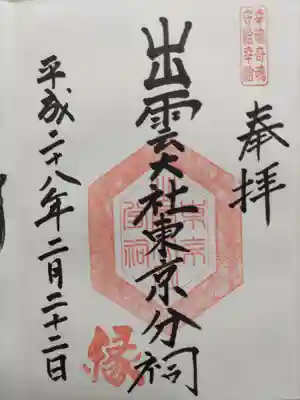 奉拝
幸魂奇魂
守給幸給
出雲大社東京分祠
縁
平成二十八年二月二十二日